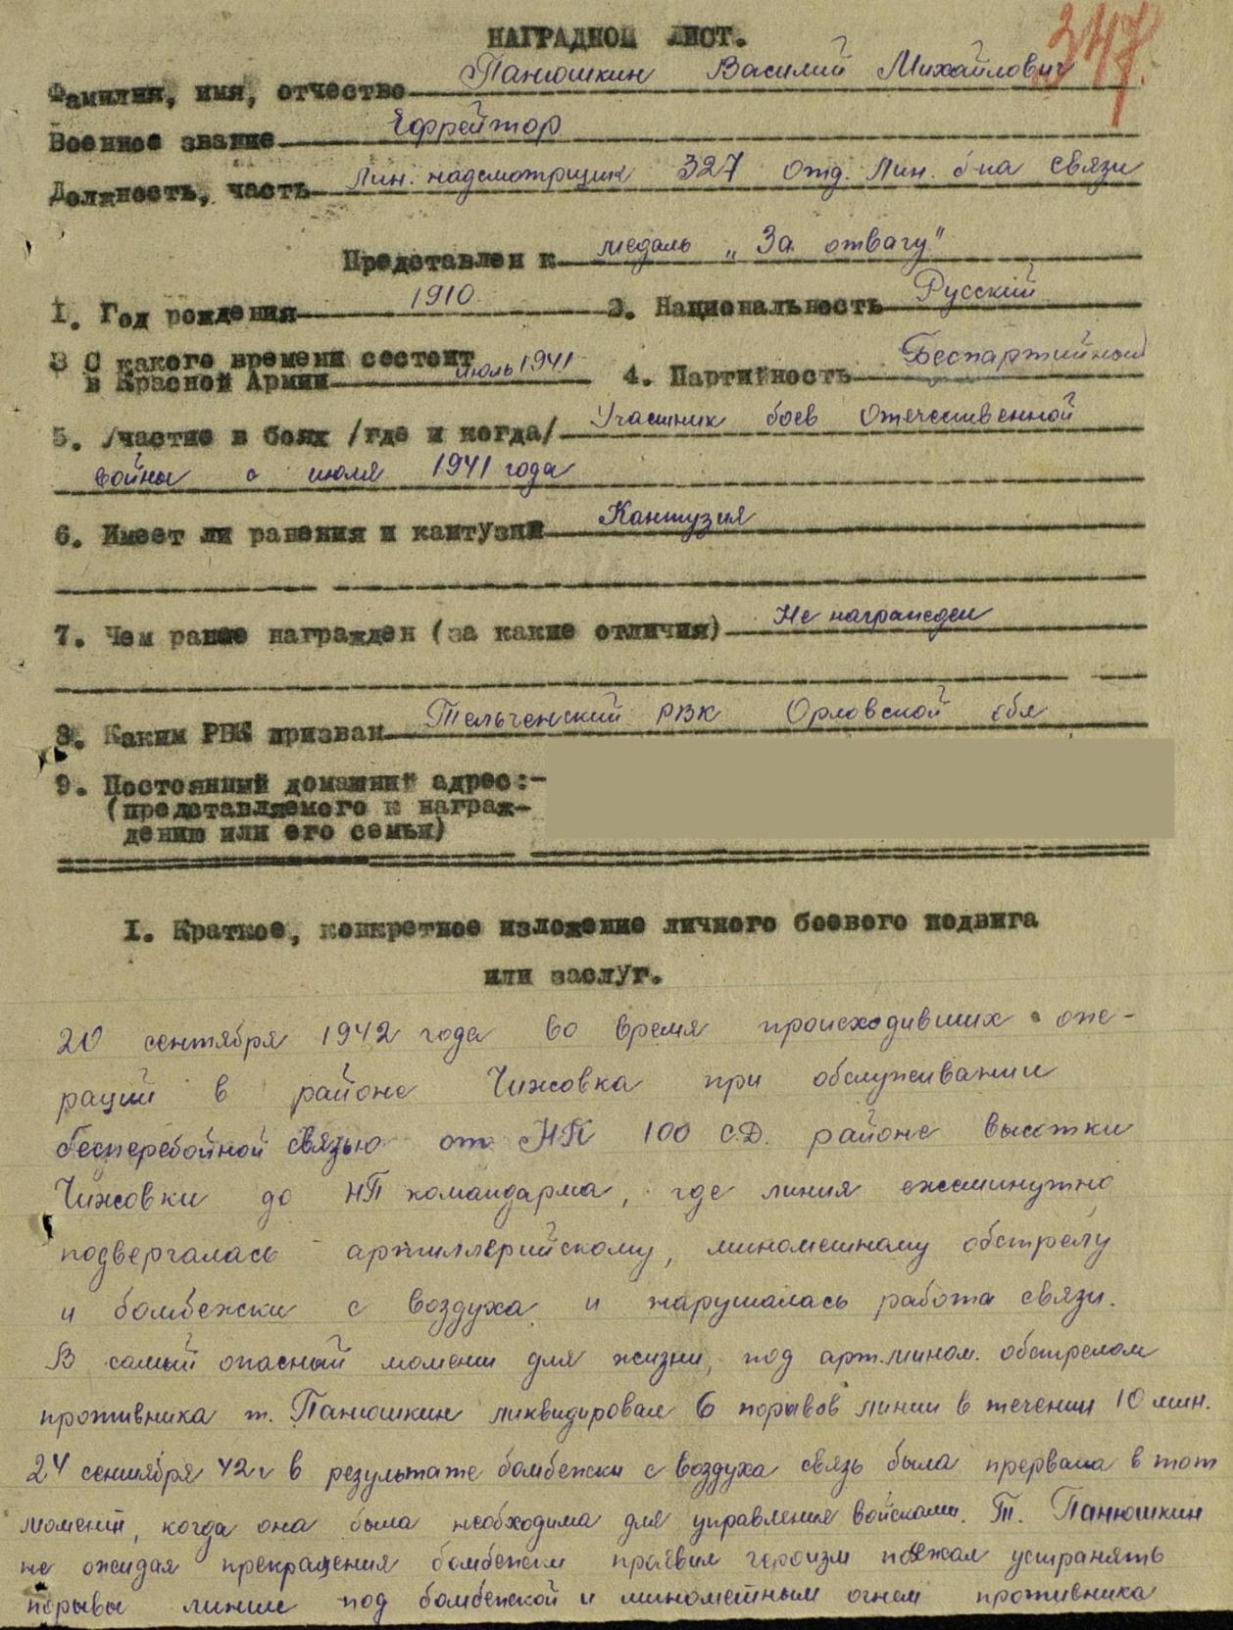 347.
НАГРАДНОЙ ЛИСТ.
Фамилия, имя, отчество Панюшкин Василий Михайлович
Военное звание Ефрейтор
Должность, часть Лин. надсмотрщик 327 отд. лин. б-на связи
Представлен к медаль „За отвагу"
1. Год рождения 1910 2. Национальность Русский
3 С какого времени состоит
в Красной Армии июль 1941 4. Партийность Беспартийный
5. Участие в боях /где и когда/ Участник боев Отечественной
войны с июля 1941 года
6. Имеет ли ранения и кантузии Кантузия
7. Чем ранее награжден (за какие отличия) Не награжден
8. Каким РВК призван Тельченский РВК Орловской обл
9. Постоянный домашний адрес:-
(представляемого к награж-
дению или его семьи)
I. Краткое, конкретное изложение личного боевого подвига
или заслуг.
20 сентября 1942 года во время происходивших опе-
раций в районе Чижовка при обслуживании
бесперебойной связью от НП 100 С.Д. районе высотки
Чижовки до НП командарма, где линия ежеминутно
подвергалась артиллерийскому, минометному обстрелу
и бомбежки с воздуха и нарушалась работа связи.
В самый опасный момент для жизни, под арт.мином. обстрелом
противника т. Панюшкин ликвидировал 6 порывов линии в течении 10 мин.
24 сентября 42 г в результате бомбежки с воздуха связь была прервана в тот
момент, когда она была необходима для управления войсками. Т. Панюшкин
не ожидая прекращения бомбежки проявил героизм побежал устранять
порывы линии под бомбежкой и минометным огнем противника